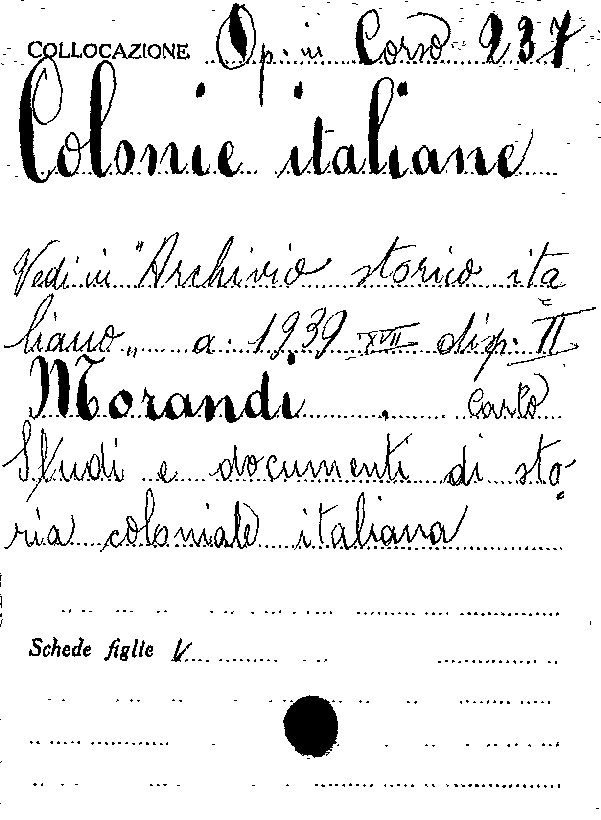 COLLOCAZIONE Op. in Corso 237
Colonie italiane
Vedi in "Archivio storico ita
liano„ a. 1939 XVII disp. II
Morandi Carlo
Studi e documenti di sto-
ria coloniale italiana
Schede figlie V